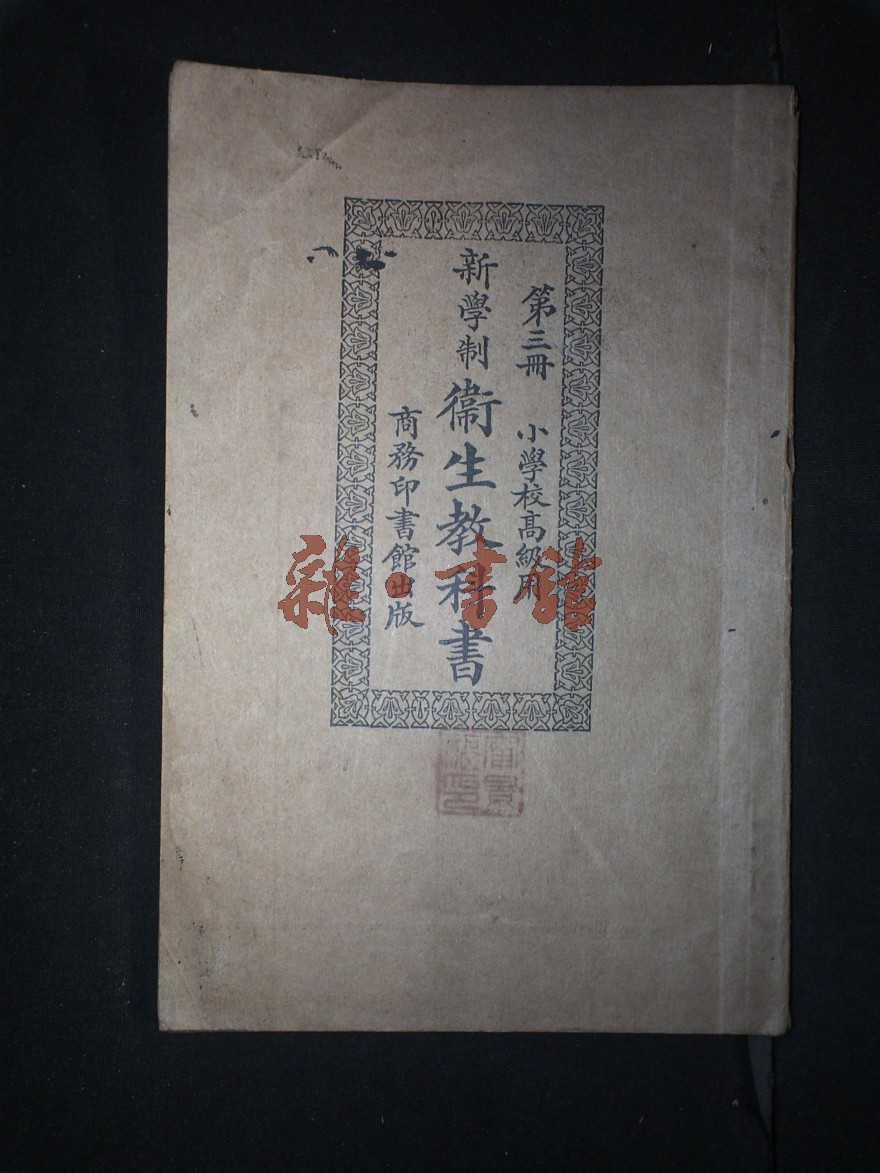 第三冊 小學校高級用
新學制衞生教科書
商務印書館出版
雜·書館